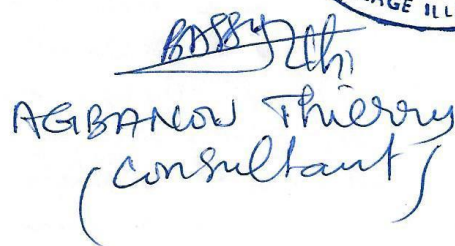 AGE ILL
AGBANOU Thierry
(Consultant)